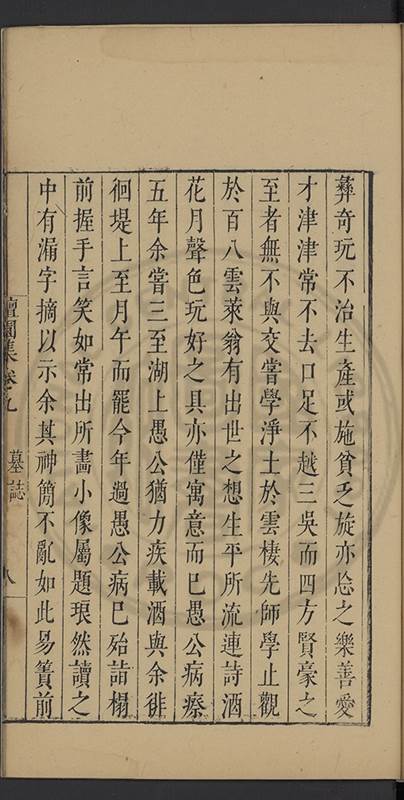 彝奇玩不治生產或施貧乏旋亦忘之樂善愛
才津津常不去口足不越三吳而四方賢豪之
至者無不與交嘗學淨土於雲棲先師學止觀
於百八雲萊翁有出世之想生平所流連詩酒
花月聲色玩好之具亦僅寓意而已愚公病瘵
五年余嘗三至湖上愚公猶力疾載酒與余徘
徊堤上至月午而罷今年過愚公病已殆詣榻
前握手言笑如常出所畵小像屬題琅然讀之
中有漏字摘以示余其神簡不亂如此易簀前
集卷九
墓誌
八